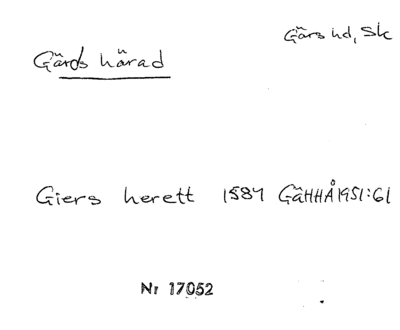 Gärds härad
Gärs hd, Sk
Giers herett 1584 GäHHÅ 1951:61
Nr 17052